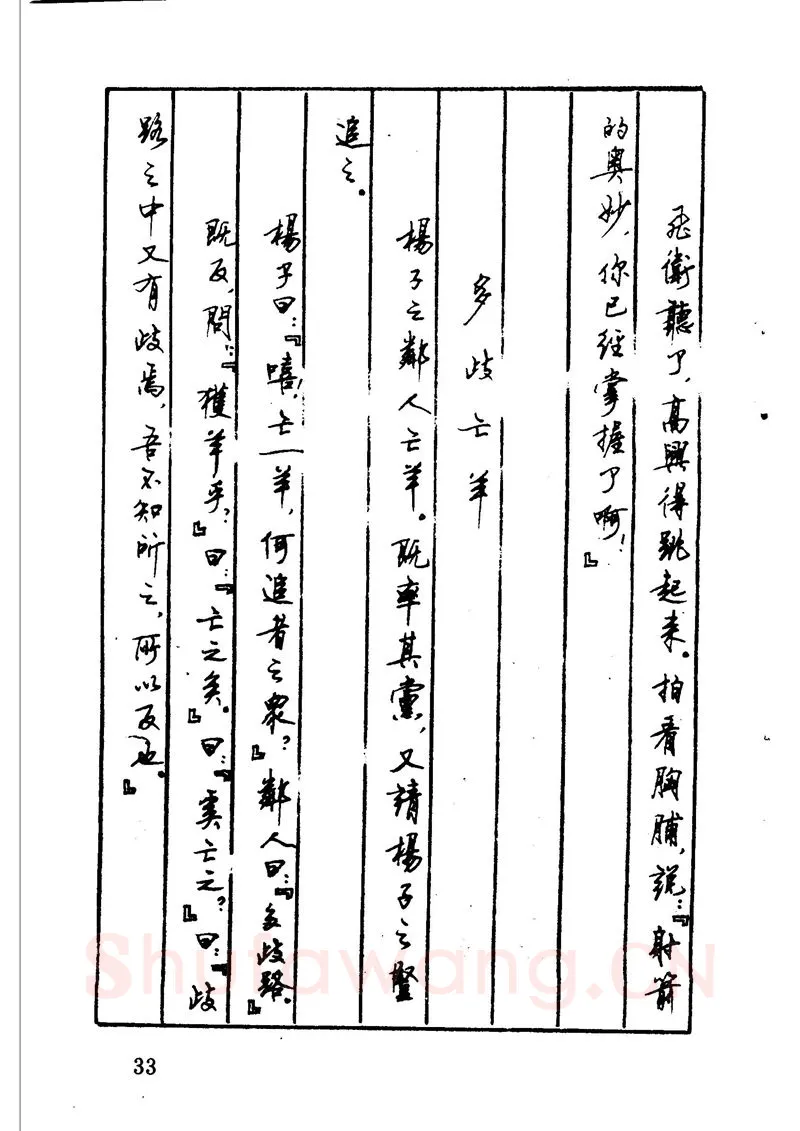 飛衛聽了，高興得跳起来。拍着胸脯，說：『射箭
的奥妙，你已经掌握了啊！』
多歧亡羊
楊子之鄰人亡羊。既率其黨，又請楊子之豎
追之。
楊子曰：『嘻！亡一羊，何追者之眾？』鄰人曰：『多歧路。』
既反，問：『獲羊乎？』曰：『亡之矣。』曰：『奚亡之？』曰：『歧
路之中又有歧焉，吾不知所之，所以反也。』
33
Shufawang.CN